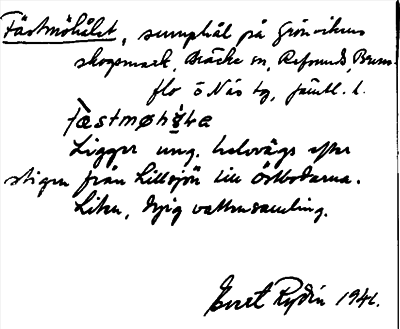 Fästmöhålet, sumphål på Grönvikens
skogsmark, Bräcke sn, Refsunds, Bruns-
flo o Näs tg, Jämtl. l.
Ligger ung. halvvägs efter
stigen från Lillsjön till Östbodarna.
Liten, dyig vattensamling.
Evert Rydin 1941.